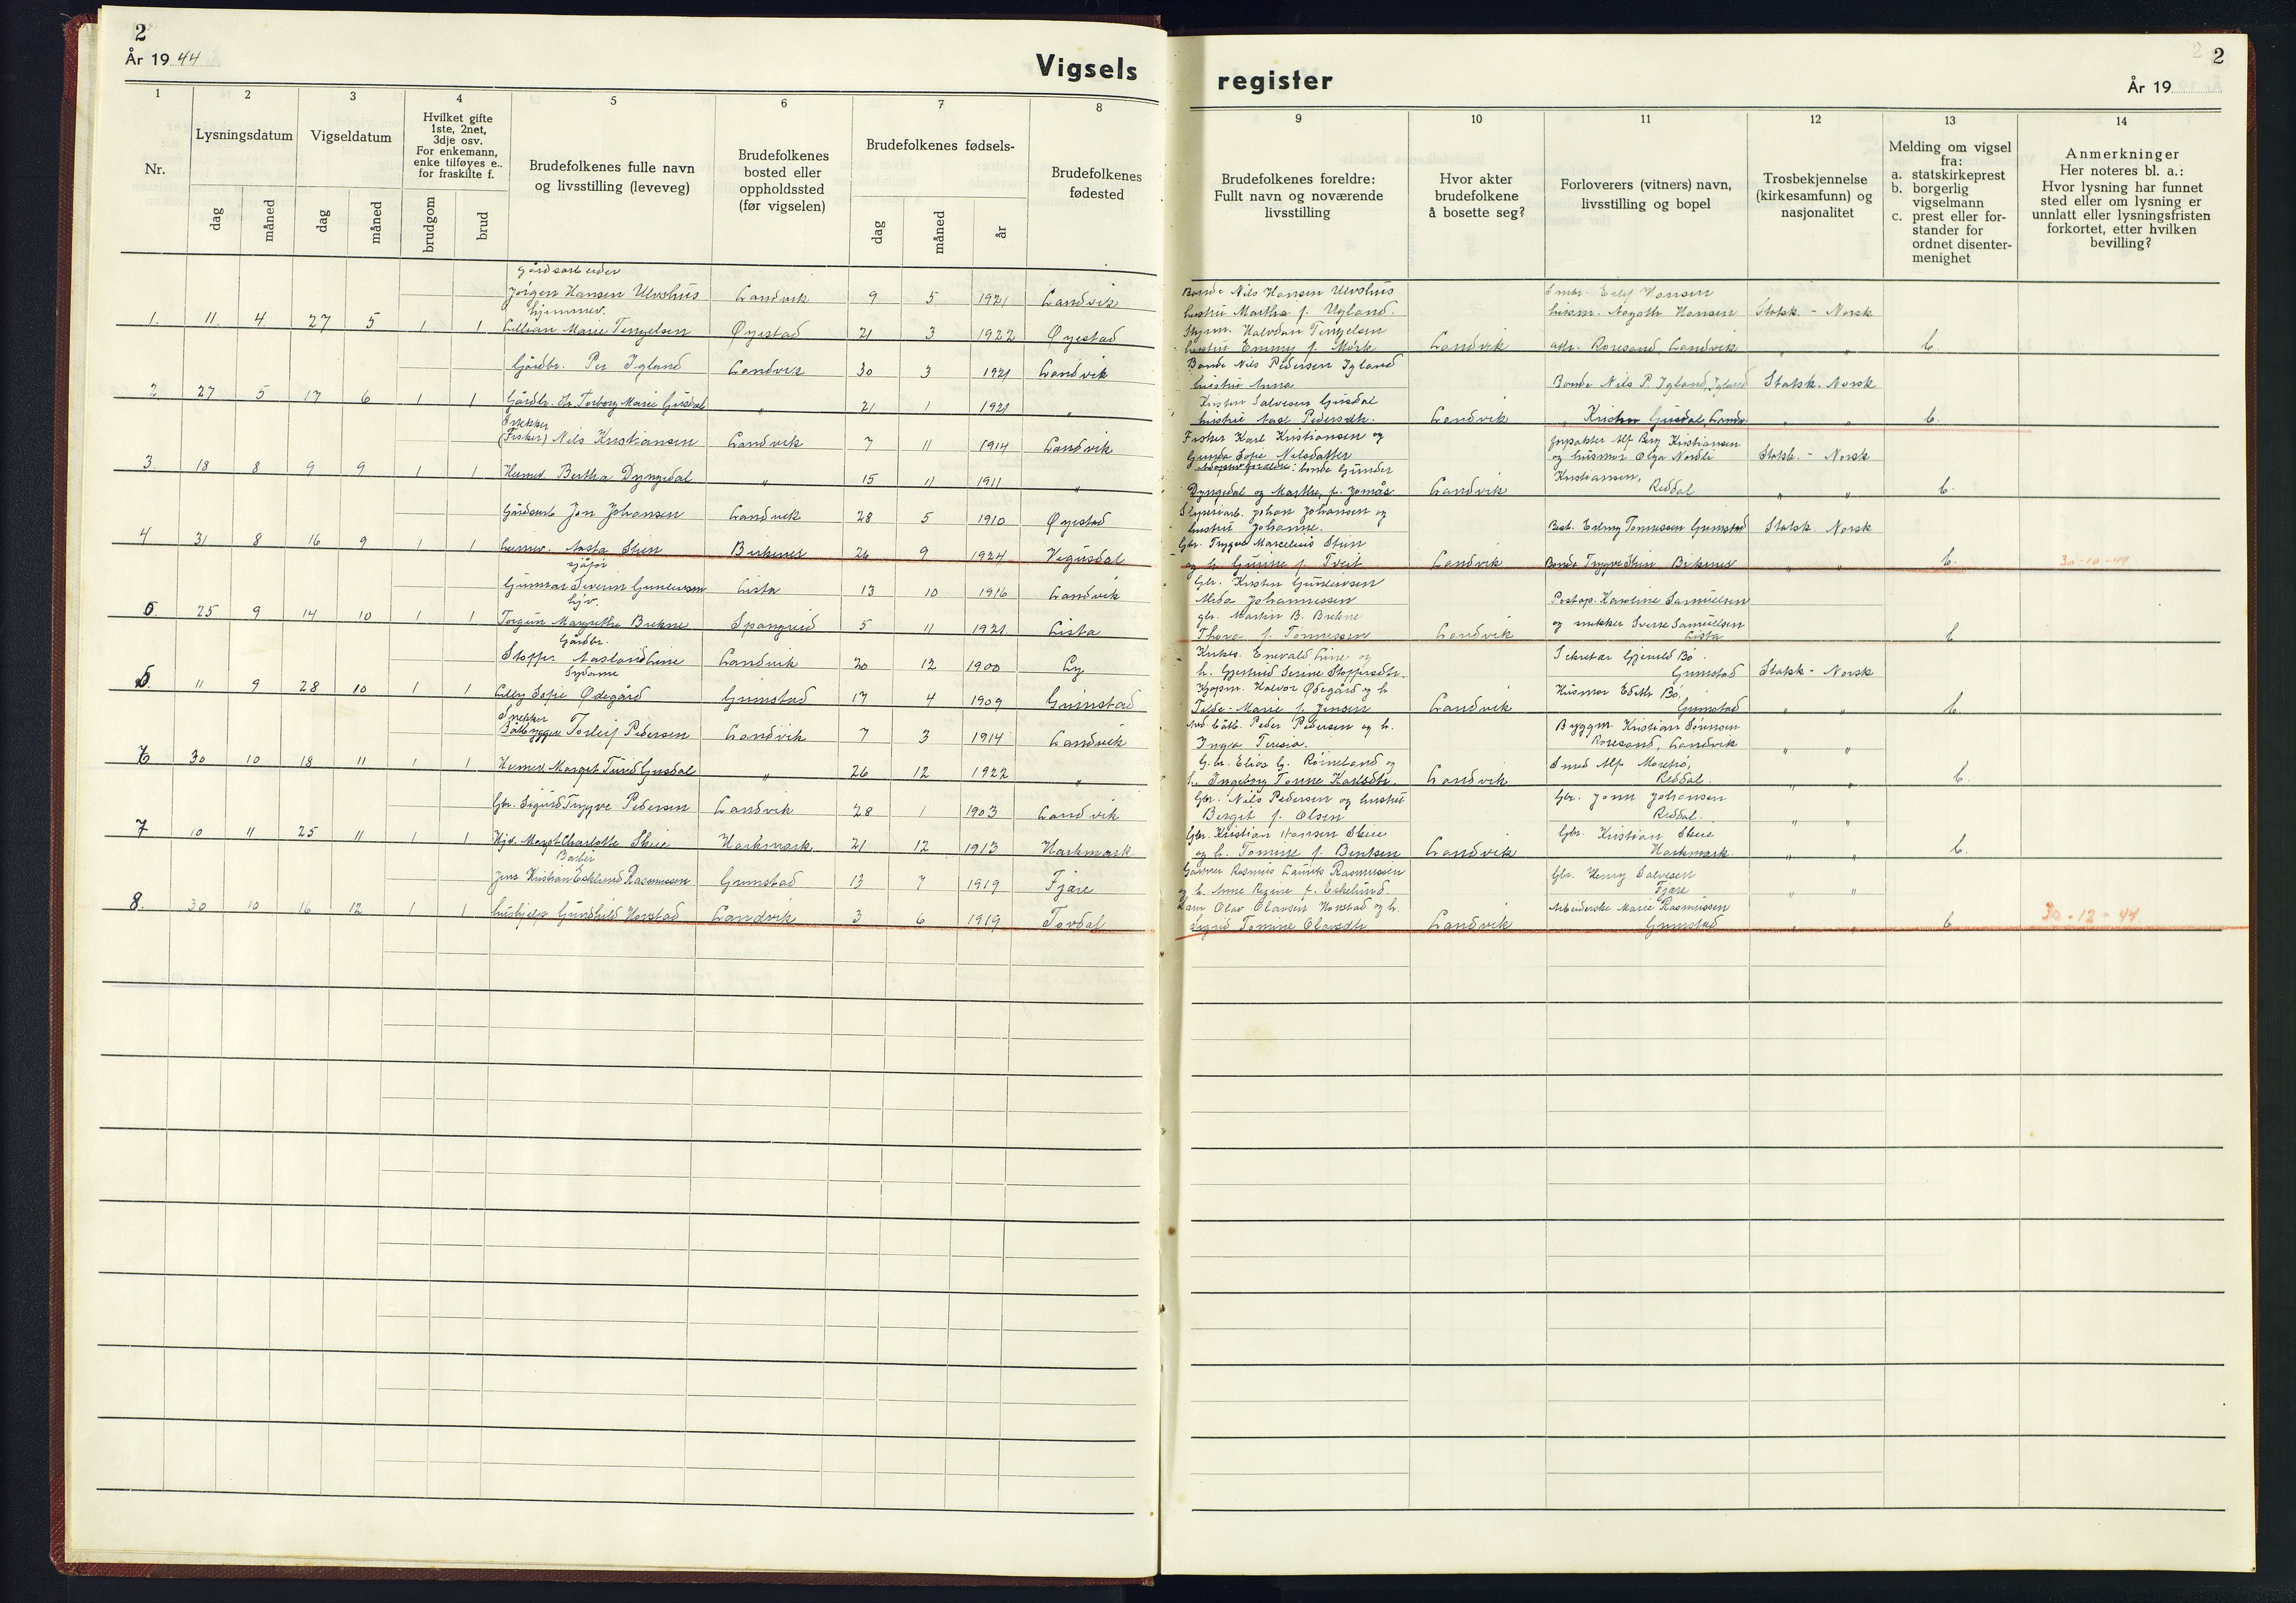 2
År 19 44
Vigsels
1
2
3
4
5
6
7
8
Nr.
Lysningsdatum
Vigseldatum
Hvilket gifte
1ste, 2net,
3dje osv.
For enkemann,
enke tilføyes e..
for fraskilte f.
Brudefolkenes fulle navn
og livsstilling (leveveg)
Brudefolkenes
bosted eller
oppholdssted
(før vigselen)
Brudefolkenes fødsels-
Brudefolkenes
fødested
dag
måned
dag
måned
brudgom
brud
dag
måned
år
Gårdsarbeider
Jørgen Hansen Ulvshus Landvik 9 5 1921 Landvik
hjemmev.
1. 11. 4 27 5 1 1 Lillian Marie Tengelsen Øyestad 21 3 1922 Øyestad
Gårdbr. Per Igland Landvik 30 3 1921 Landvik
2 27 5 17 6 1 1 Gårdbr. dtr. Torborg Marie Gusdal " 21 1 1921 "
Snekker
(Fisker) Nils Kristiansen Landvik 7 11 1914 Landvik
3. 18 8 9 9 1 1 Heimev. Bertha Dyngedal " 15 11 1911 "
Gårdsarb. Jon Johansen Landvik 28 5 1910 Øyestad
4 31 8 16 9 1 1 heimev. Aasta Stien Birkenes 26 9 1924 Vegusdal
sjåfør
Gunnar Severin Gundersen Lista 13 10 1916 Landvik
hjv.
5. 25 9 14 10 1 1 Torgun Margrethe Brekne Spangreid 5 11 1921 Lista
Gårdbr.
Stoffer Aasland Line Landvik 20 12 1900 Ly
Sydame
5. 11 9 28 10 1 1 Lilly Sofie Ødegård Grimstad 17 4 1909 Grimstad
Snekker
Båtbygger Torleif Pedersen Landvik 7 3 1914 Landvik
6 30 10 18 11 1 1 Heimev. Margit Turid Gusdal " 26 12 1922 "
Gbr. Sigurd Trygve Pedersen Landvik 28 1 1903 Landvik
7 10 11 25 11 1 1 Hjv. Margot Charlotte Skeie Harkmark 21 12 1913 Harkmark
Barber
Jens Kristian Eskelund Rasmussen Grimstad 13 7 1919 Fjære
8. 30 10 16 12 1 1 hushjelp Gundhild Hovstad Landvik 3 6 1919 Tovdal
register
2
År 19
9
10
11
12
13
14
Brudefolkenes foreldre:
Fullt navn og noværende
livsstilling
Hvor akter
brudefolkene
å bosette seg?
Forloverers (vitners) navn,
livsstilling og bopel
Trosbekjennelse
(kirkesamfunn) og
nasjonalitet
Melding om vigsel
fra:
a. statskirkeprest
b. borgerlig
vigselmann
c. prest eller for-
stander for
ordnet disenter-
menighet
Anmerkninger
Her noteres bl. a.:
Hvor lysning har funnet
sted eller om lysning er
unnlatt eller lysningsfristen
forkortet, etter hvilken
bevilling?
Bonde Nils Hansen Ulvshus Hansen
hustru Martha f. Ugland. husm. Aagoth Hansen Statsk. - Norsk
Halvdan Tengelsen
hustru Emmy f. Mørk Landvik adr. Roresand, Landvik " " b.
Bonde Nils Pedersen Igland
hustru Anna Bonde Nils P. Igland, Igland Statsk. Norsk
Kristen Salvesen Gusdal
hustru Aase Pedersdtr. Landvik " Kristen Gusdal, Landv. " " b.
Fisker Karl Kristiansen og Alf Berg Kristiansen
Gunda Sofie Nilsdatter og husmor Olga Nordli Statsk. - Norsk
Adoptivforeldre: bonde Gunder Kristiansen,
Dyngedal og Marthe, f. Jomås Landvik Reddal " " b.
Johan Johansen og
hustru Johanne. Best. Erling Tønnessen Grimstad Statsk. Norsk
Gbr. Trygve Marcelius Stien
og h. Gunne f. Tveit Landvik Bonde Trygve Stien Birkenes " " b. 30-10-44
Gbr. Kristen Gundersen
Meda Johannessen Postop. Karoline Samuelsen
gbr. Martin B. Brekne og snekker Sverre Samuelsen
Thora f. Tønnessen Landvik Lista b
Enevald Line og Sekretær Gjerulf Bø.
h. Gjertrud Serine Stoffersdtr. Grimstad Statsk - Norsk
Kjøpm. Halvor Ødegård og h. Husmor Edith Bø,
Tilda-Marie f. Jensen Landvik Grimstad " " b
Peder Pedersen og h. Byggm. Kristian Sørensen
Inga Teresia. Roresand, Landvik " "
G.br. Elias G. Røineland og Smed Alf Moreho,
h. Ingeborg Tomine Karlsdtr. Landvik Reddal. " " b.
Gbr. Nils Pedersen og hustru Gbr. Jonn Johansen
Bergit f. Olsen Reddal. " "
Gbr. Kristian Hansen Skeie Gbr. Kristian Skeie
og h. Tomine f. Bentsen Landvik Harkmark. " " b.
Garver Rasmus Laurits Rasmussen Gbr. Henry Salvesen
og h. Anne Regine f. Eskelund. Fjære " "
Olav Olavsen Hovstad og h. Arbeiderske Marie Rasmussen
Sigrid Tomine Olavsdtr Landvik Grimstad " " b 30-12-44